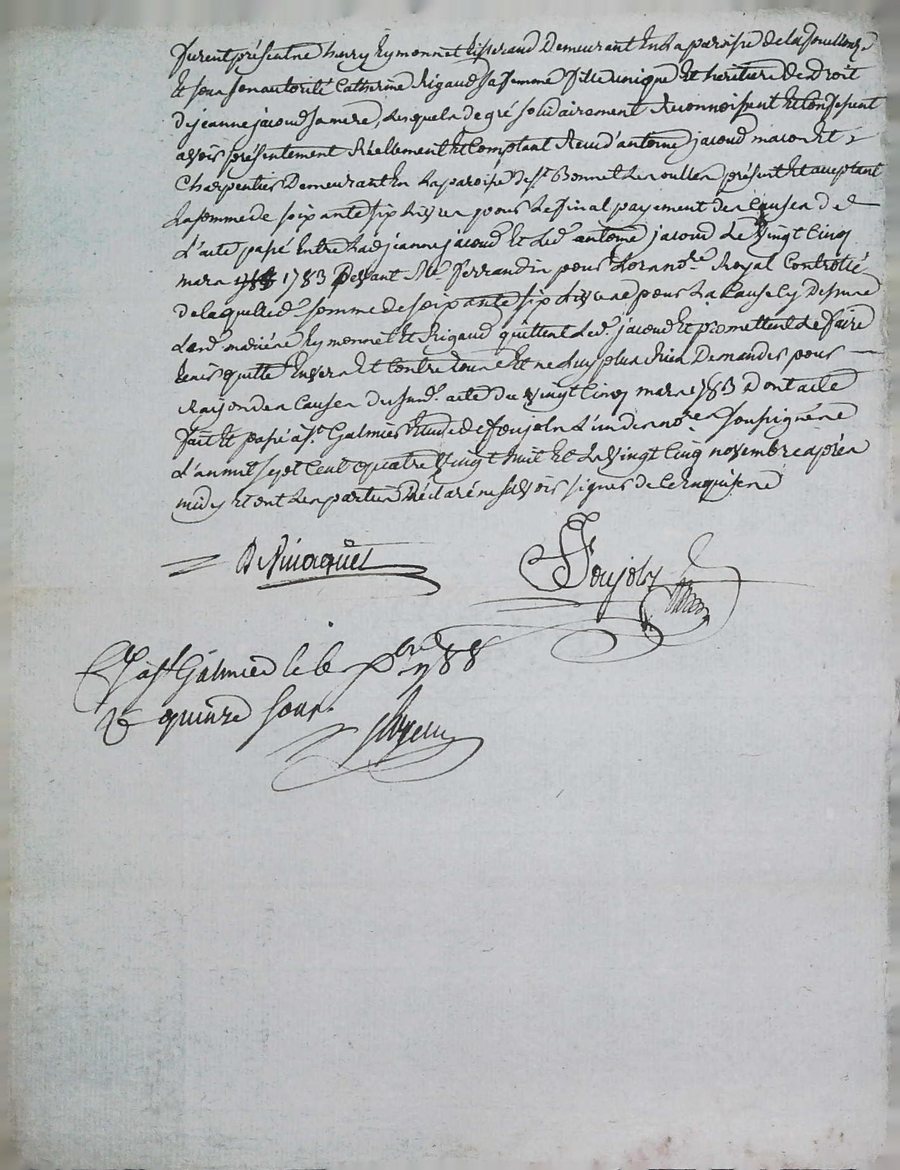 furent présents henry Eymonnet tisserand Demeurant En La paroise de la fouillouze
Et sous son autorité Catherine Rigaud sa femme fille unique Et heritiere de droit
de jeanne jacoud sa mere, Lesquels de gré solidairement Reconnoissent Et Confessent
avoir présentement Réellement Et Comptant Receu d'antoine jacoud macon Et
Charpentier Demeurant En La paroise de st Bonnet Les oulles présent Et aceptant
La somme de soixante six Livres pour Le final payement des Causes de
L'acte passé Entre Lad. jeanne jacoud Et Led. antoine jacoud Le Vingt Cinq
mars 1783 Devant Me ferrandin pour Lors nore Royal Controllé
de laquelle d. somme de soixante six Livres pour La Cause Cy Dessus
Lesd. mariés Eymonnet Et Rigaud quittent Led. jacoud Et promettent Le faire
tenir quitte Envers Et Contre tous Et ne Luy plus Rien Demander pour
Raison des Causes du susd. acte du Vingt Cinq mars 1783 Dont acte
fait Et passé a st Galmier Etude de foujols L'un des nores soussignés
L'an mil sept Cent quatre Vingt huit Et Le Vingt Cinq novembre après
midy Et ont Les parties Déclaré ne savoir signer de ce Enquises
foujols
a st Galmier le 6 Xbre 1788
quinze sous.